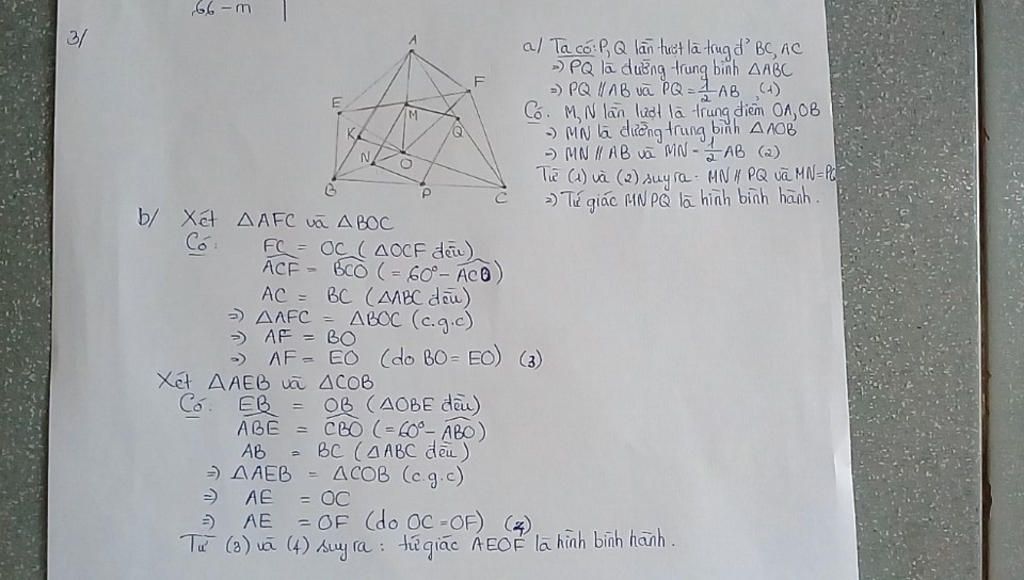 66-m
3/
A
F
E
M
K
Q
N
O
B
P
C
a/ Ta có: P, Q lần lượt là trug đ² BC, AC
⇒ PQ là đường trung bình △ABC
⇒ PQ // AB và PQ = 1/2 AB (1)
Có. M, N lần lượt là trung điểm OA, OB
⇒ MN là đường trung bình △AOB
⇒ MN // AB và MN = 1/2 AB (2)
Từ (1) và (2) suy ra. MN // PQ và MN = PQ
⇒ Tứ giác MNPQ là hình bình hành.
b/ Xét △AFC và △BOC
Có: FC = OC (△OCF đều)
ACF = BCO (= 60° - ACO)
AC = BC (△ABC đều)
⇒ △AFC = △BOC (c.g.c)
⇒ AF = BO
⇒ AF = EO (do BO = EO) (3)
Xét △AEB và △COB
Có: EB = OB (△OBE đều)
ABE = CBO (= 60° - ABO)
AB = BC (△ABC đều)
⇒ △AEB = △COB (c.g.c)
⇒ AE = OC
⇒ AE = OF (do OC = OF) (4)
Từ (3) và (4) suy ra: tứ giác AEOF là hình bình hành.